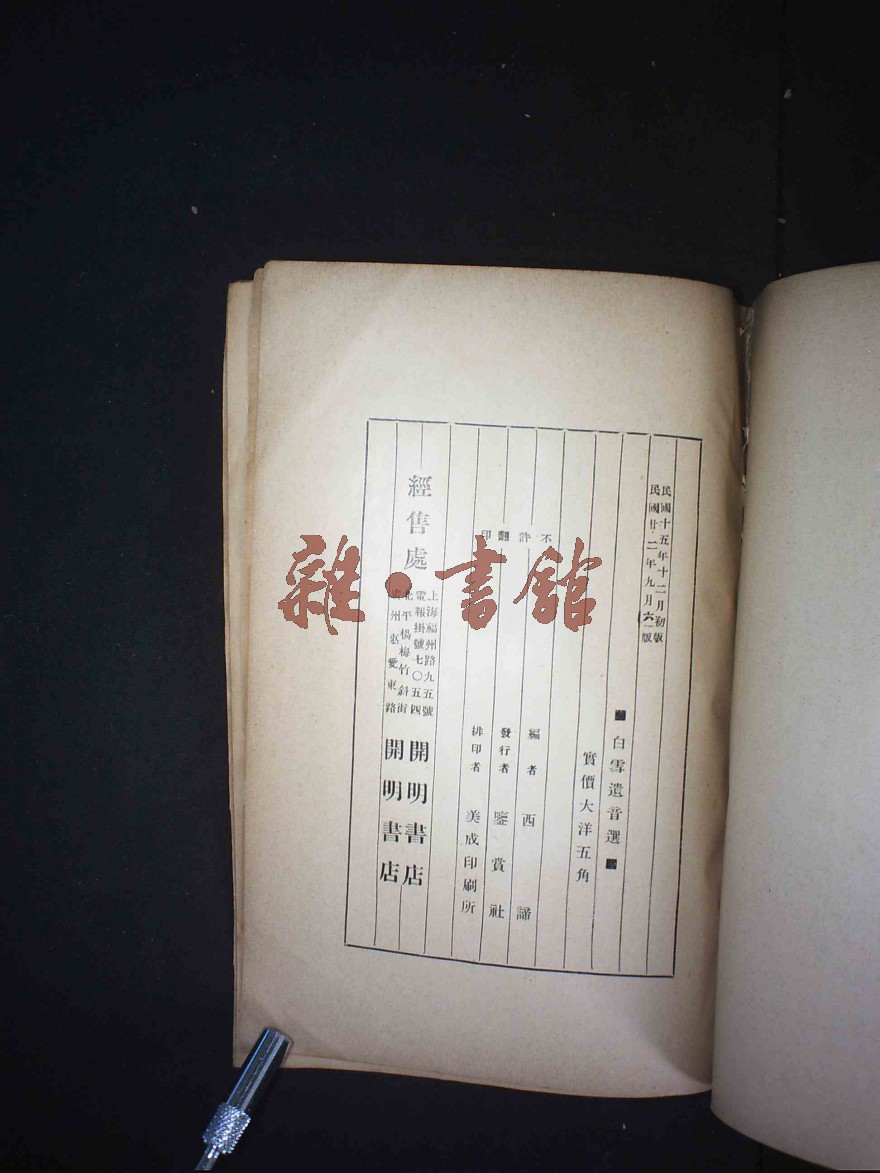 民國十五年十二月初版
民國廿二年九月六版
白雪遺音選
實價大洋五角
不許翻印
編者 西諦
發行者 鑒賞社
排印者 美成印刷所
經售處
上海福州路九五號
電報掛號七〇五四
開明書店
北平楊梅竹斜街
廣州惠愛東路
開明書店
雜·書館